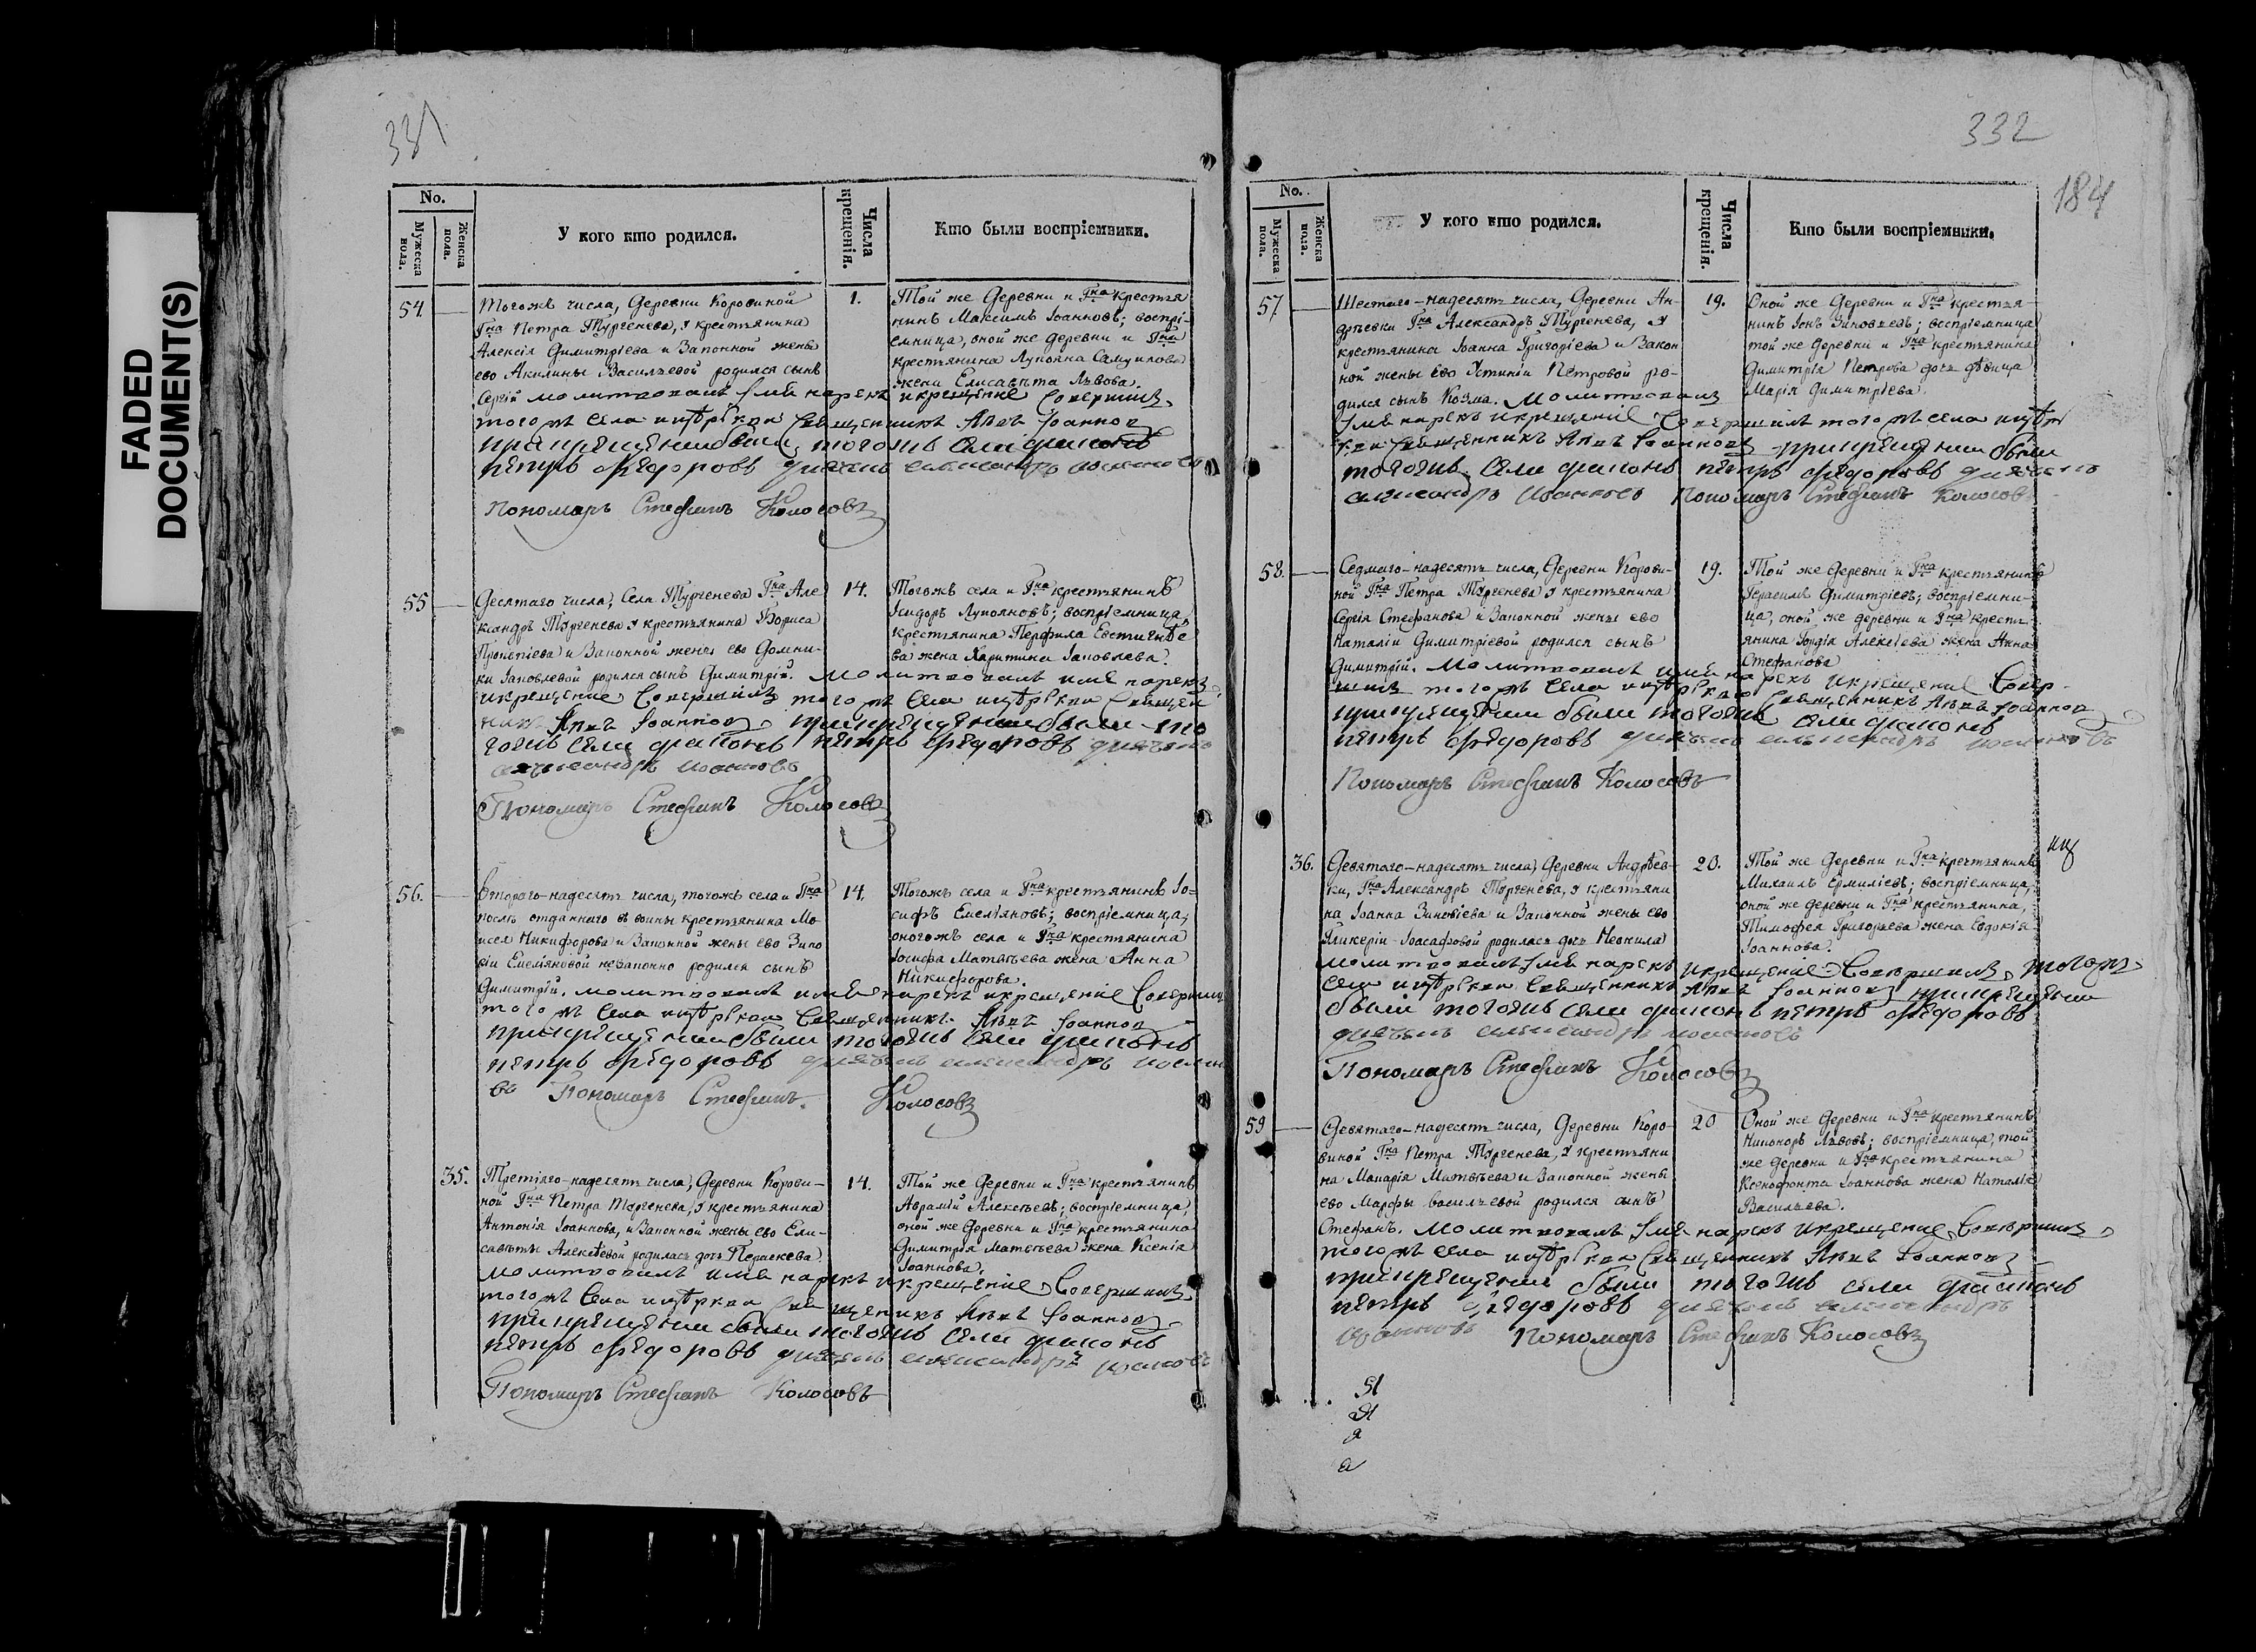 FADED
DOCUMENT(S)
331
No.
Мужеска пола.
Женска пола.
У кого кто родился.
Числа крещенія.
Кто были воспріемники.
54.
Тогожъ числа, Деревни Коровиной
Гна Петра Тургенева, у крестьянина
Алексія Димитріева и Законной жены
ево Акилины Васильевой родился сынъ
Сергій молитвовалъ имя нарекъ и крещение совершилъ
тогожъ села и церкви священникъ Левъ Іоанновъ
при крещении были тогожъ села диаконъ
петръ федоровъ дьячекъ александръ ивановъ
Пономарь Стефанъ Колосовъ
1.
Той же Деревни и Гна крестья
нинъ Максимъ Іоанновъ; воспрі-
емница, оной же деревни и Гна
крестьянина Лупояна Самуилова
жена Елисавѣта Львова.
55
Десятаго числа, Села Тургенева Гна Але
ксандръ Тургенева у крестьянина Бориса
Прокопіева и Законной жены ево Домни-
ки Іаковлевой родился сынъ Димитрій. молитвовалъ имя нарекъ
и крещение совершилъ тогожъ села и церкви священ
никъ Левъ Іоанновъ при крещении были то
гожъ села диаконъ петръ федоровъ дьячекъ
александръ ивановъ
Пономарь Стефанъ Колосовъ
14.
Тогожъ села и Гна крестьянинъ
Ісидоръ Лупояновъ; воспріемница,
крестьянина Перфила Евстигнѣе
ва жена Харитина Іаковлева.
56.
Второго-надесять числа, тогожъ села и Гна
послѣ отданнаго въ воины крестьянина Мо
исея Никифорова и Законной жены ево Зино
віи Емеліяновой незаконно родился сынъ
Димитрій. молитвовалъ имя нарекъ и крещение совершилъ
тогожъ села и церкви священникъ Левъ Іоанновъ
при крещении были тогожъ села диаконъ
петръ федоровъ дьячекъ александръ иоанно
въ Пономарь Стефанъ Колосовъ
14.
Тогожъ села и Гна крестьянинъ Іо-
сифъ Емеліяновъ; воспріемница,
оногожъ села и Гна крестьянина
Іосифа Матвѣева жена Анна
Никифорова.
35.
Третіяго-надесять числа, Деревни Корови-
ной Гна Петра Тургенева, у крестьянина
Антонія Іоаннова, и Законной жены ево Ели-
савѣты Алексѣевой родилась дочь Параскева.
молитвовалъ имя нарекъ и крещение совершилъ
тогожъ села и церкви священникъ Левъ Іоанновъ
при крещении были тогожъ села диаконъ
петръ федоровъ дьячекъ александръ ивановъ
Пономарь Стефанъ Колосовъ
14.
Той же Деревни и Гна крестьянинъ
Аврамій Алексѣевъ; воспріемница,
оной же Деревни и Гна крестьянина
Димитрія Матвѣева жена Ксенія
Іоаннова.
332
184
No.
Мужеска пола.
Женска пола.
У кого кто родился.
Числа крещенія.
Кто были воспріемники.
57.
Шестаго-надесять числа, Деревни Ан-
дрѣевки Гна Александръ Тургенева, у
крестьянина Іоанна Григоріева и Закон
ной жены ево Устиніи Петровой ро-
дился сынъ Козма. Молитвовалъ
имя нарекъ и крещение совершилъ тогожъ села и цер
кви священникъ Левъ Іоанновъ при крещении были
тогожъ села диаконъ петръ федоровъ дьячекъ
александръ ивановъ Пономарь Стефанъ Колосовъ
19.
Оной же Деревни и Гна крестья-
нинъ Іонъ Зиновіевъ; воспріемница
той же деревни и Гна крестьянина
Димитрія Петрова дочь дѣвица
Марія Димитріева.
58.
Седмаго-надесять числа, Деревни Корови-
ной Гна Петра Тургенева у крестьянина
Сергія Стефанова и Законной жены ево
Наталіи Димитріевой родился сынъ
Димитрій. Молитвовалъ имя нарекъ и крещение совер-
шилъ тогожъ села и церкви священникъ Левъ Іоанновъ
при крещении были тогожъ села диаконъ
петръ федоровъ дьячекъ александръ ивановъ
Пономарь Стефанъ Колосовъ
19.
Той же Деревни и Гна крестьянинъ
Герасимъ Димитріевъ; воспріемни-
ца, оной же деревни и Гна кресть-
янина Гордія Алексіева жена Анна
Стефанова
36.
Девятаго-надесять числа, Деревни Андрѣев-
ки, Гна Александръ Тургенева, у крестьяни
на Іоанна Зиновіева и Законной жены ево
Гликеріи Іоасафовой родилась дочь Неонила
молитвовалъ имя нарекъ и крещение совершилъ тогожъ
села и церкви священникъ Левъ Іоанновъ при крещении
были тогожъ села диаконъ петръ федоровъ
дьячекъ александръ ивановъ
Пономарь Стефанъ Колосовъ
20.
Той же Деревни и Гна крестьянинъ
Михаилъ Ермиліевъ; воспріемница,
оной же деревни и Гна крестьянина,
Тимофея Григорьева жена Евдокія
Іоаннова.
59
Девятаго-надесять числа, Деревни Коро-
виной Гна Петра Тургенева, у крестьяни
на Макарія Матвѣева и Законной жены
ево Марфы Васильевой родился сынъ
Стефанъ. Молитвовалъ имя нарекъ и крещение совершилъ
тогожъ села и церкви священникъ Левъ Іоанновъ
при крещении были тогожъ села диаконъ
петръ федоровъ дьячекъ александръ
ивановъ Пономарь Стефанъ Колосовъ
20
Оной же Деревни и Гна крестьянинъ
Никоноръ Львовъ; воспріемница, той
же деревни и Гна крестьянина
Ксенофонта Іоаннова жена Наталія
Васильева.